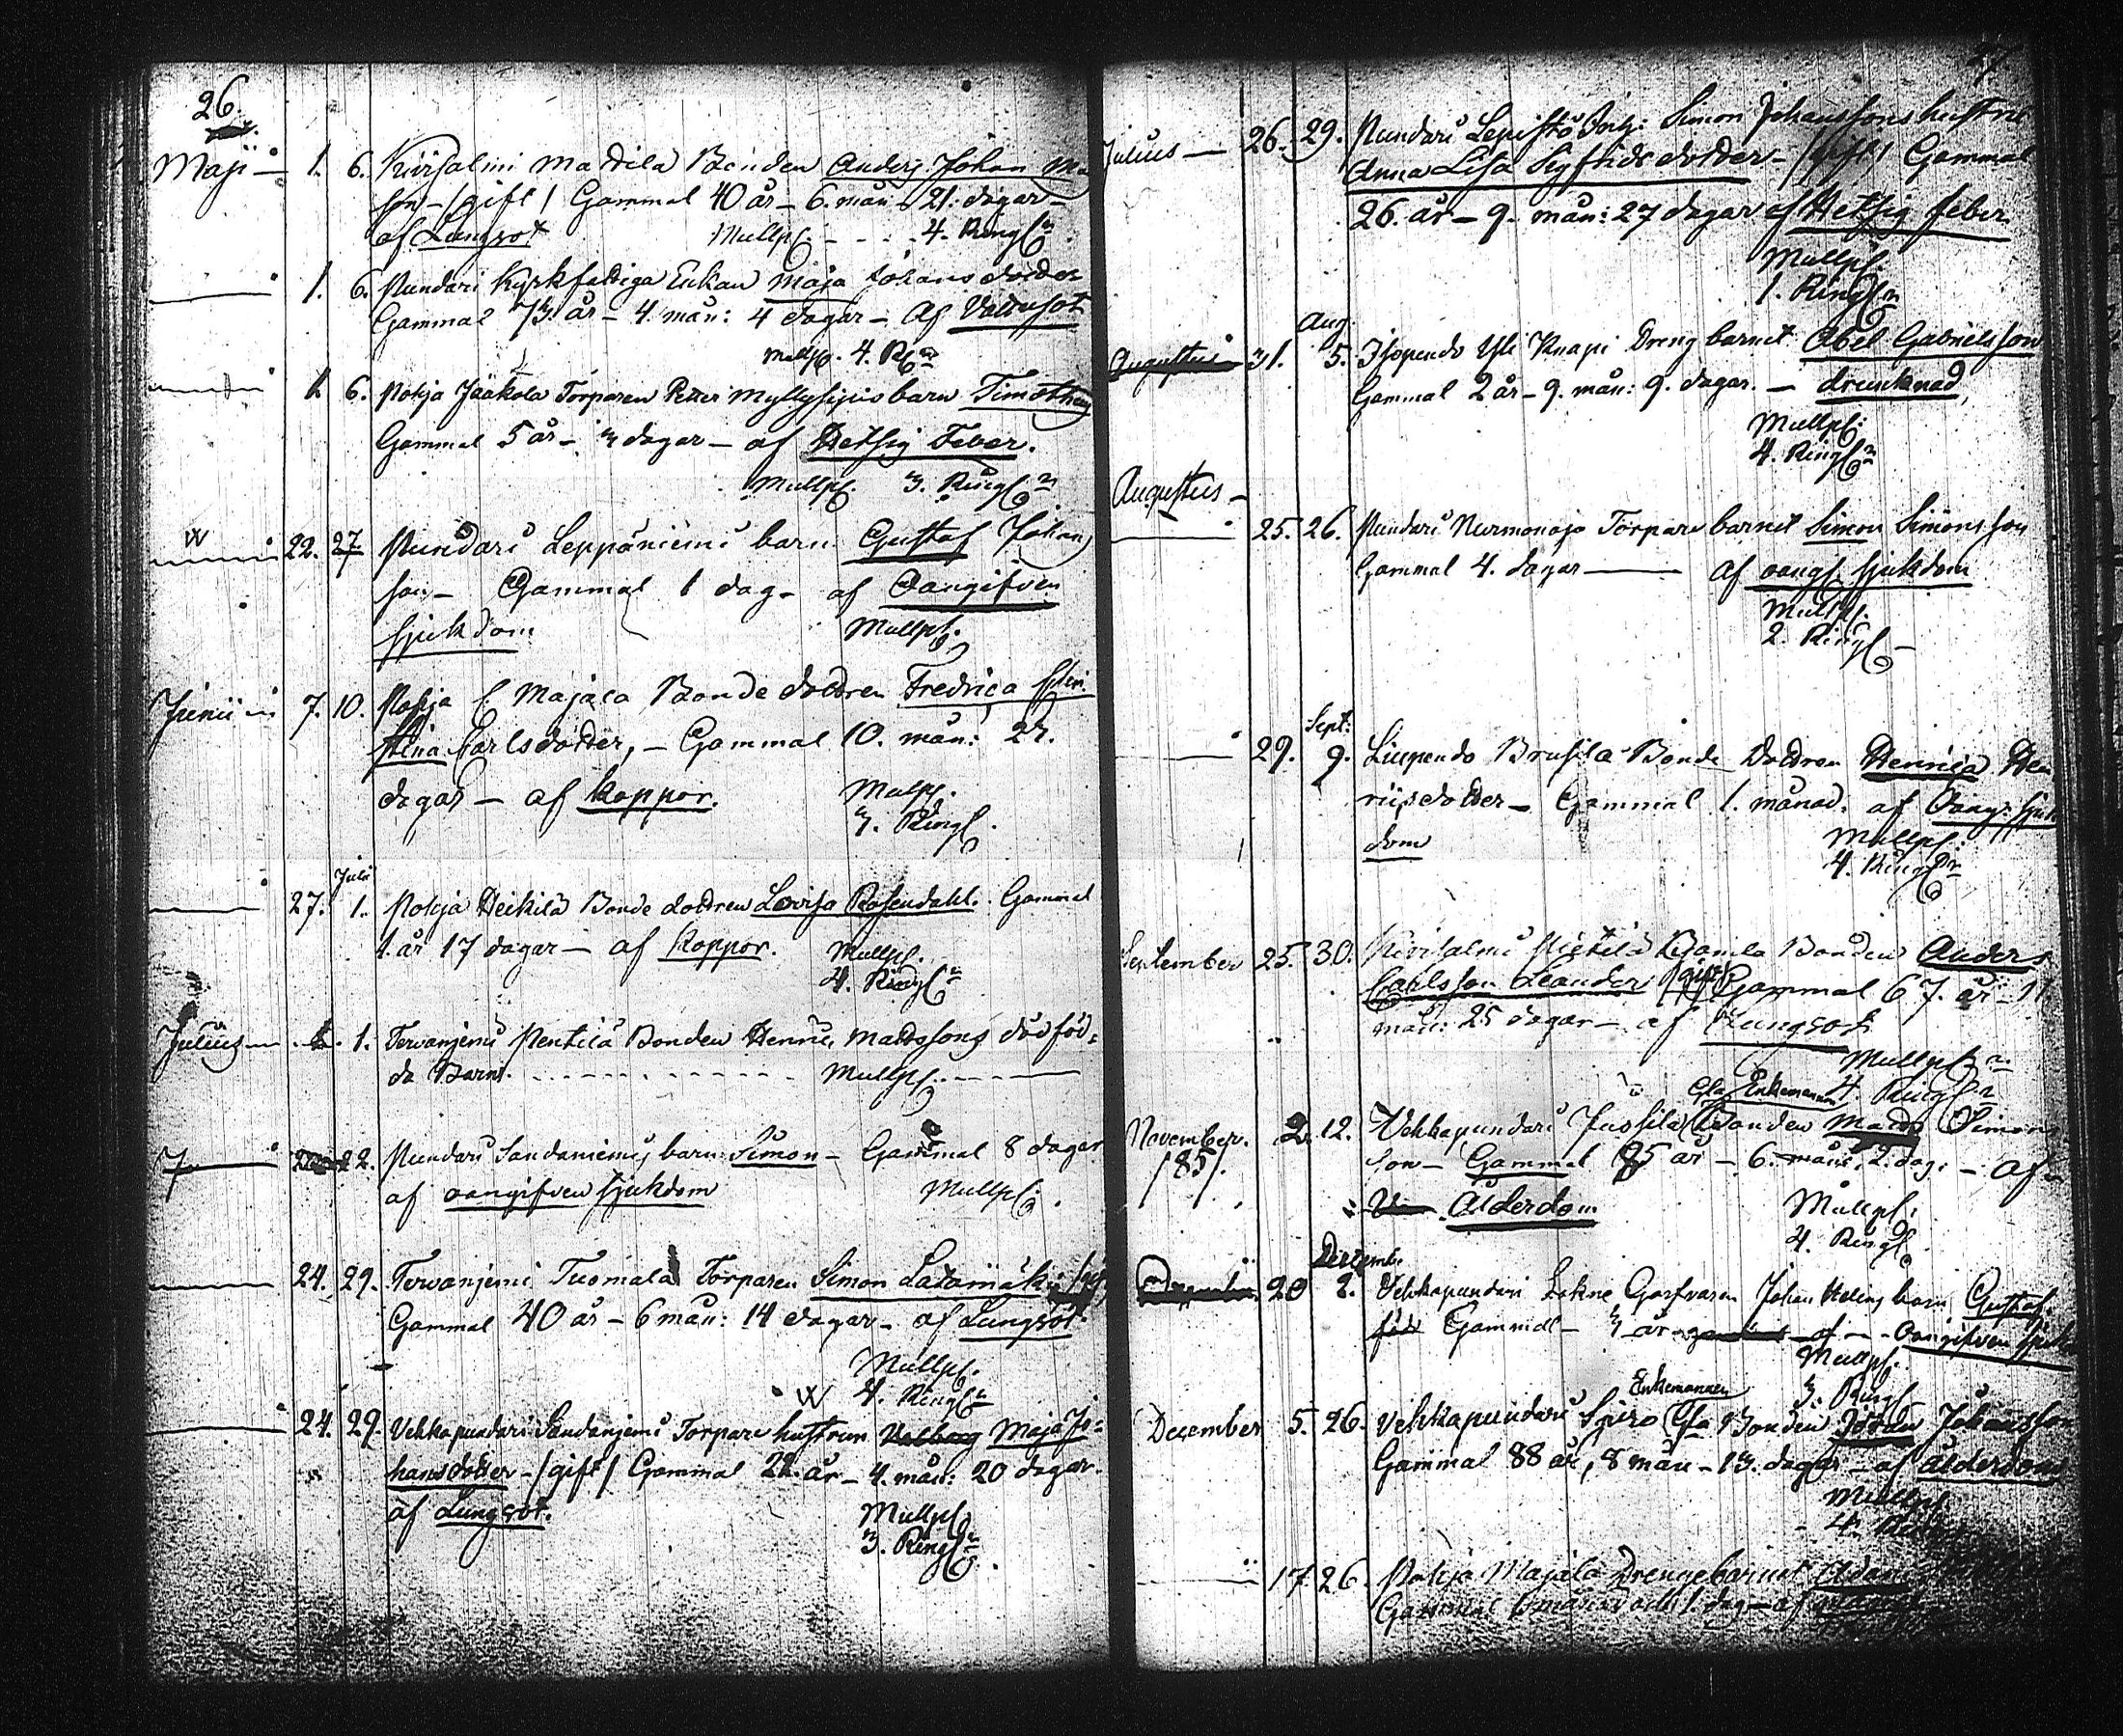 26.
Maji — 1. 6. Kirjalmi Mattila Bonden Anders Johan Ma
son — /gift/ Gammal 40 år — 6. mån 21. dagar —
af Lungsot Mullpl. - - - 4. Ringn
— 1. 6. Pundari Kyrkfattiga Enkan Maja Johans dotter
Gammal 73 år — 4. mån: 4 dagar — Af Vattusot
Mullpl. 4. Rn
— 1. 6. Pohja Jaakola Torparen Petter Myllysijus barn Timotheus
Gammal 5 år — 3 dagar — af Hetsig Feber.
Mullpl. 3. Ringn
— 22. 27. Pundari Leppäniemi barn Gustaf Johan
son — Gammal 1 dag — af Oangifven
sjukdom Mullpl.
Junii — 7. 10. Pohja Majala Bonde dottren Fredrica
Stina Carlsdotter, — Gammal 10. mån: 27.
dagar — af Koppor. Mullpl.
3. Ringl.
Julii
— 27. 1. Pohja Heikilä Bonde dottren Lovisa Rosendahl. Gammal
1. år 17 dagar — af Koppor. Mullpl.
4. Ringn
Julius — 1. 1. Tervanjemi Pentilä Bonden Henric Mattssons dödföd-
da Barn. - - - Mullpl. —
22. Pundari Sandaniemi barn Simon — Gammal 8 dagar
af oangifven sjukdom Mullpl.
— 24. 29. Tervanjemi Tuomala Torparen Simon Latamäki
Gammal 40 år — 6 mån: 14 dagar — af Lungsot.
Mullpl.
4. Ringn
— 24. 29. Vekkapundari Sandanjemi Torpare hustrun Valborg Maja Jo-
hans dotter — /gift/ Gammal 22. år — 4. mån: 20 dagar.
af Lungsot. Mullpl.
3. Ringn
27.
Julius — 26. 29. Pundari Lepistö Inh: Simon Johanssons hustru
Anna Lisa Sigfrids dotter — /gift/ Gammal
26. år — 9. mån: 27 dagar af Hetsig feber
Mullpl.
1. Ringn
Aug.
Augustus 31. 5. Isopendo Yli Knapi Dreng barnet Abel Gabrielsson
Gammal 2 år — 9. mån: 9. dagar. — drunknad
Mullpl:
4. Ringn
Augustus —
— 25. 26. Pundari Nurmenoja Torpare barnet Simon Simonsson
Gammal 4. dagar — af oangf. sjukdom
Mullpl.
2. Ringl —
Sept:
— 29. 9. Liupendo Brusila Bonde Dottren Henrica Hen
ricsdotter — Gammal 1. månad. af Oang: sjuk
dom Mullpl:
4. Ringn
September 25. 30. Kirjalmi Mickilä Gamla Bonden Anders
Carlsson Leander /gift/ Gammal 67. år — 11
mån: 25 dagar — af Lungsot
Mullpl.
Gla Enkemannen 4. Ringn
November. 2. 12. Vekkapundari Jussila Bonden Matts Simons
1851. son — Gammal 85 år — 6. mån: 2. dag: — af
Ålderdom Mullpl:
4. Ringl
Decemb.
20 2. Vekkapundari Lokne Garfvaren Johan Helins barn Gustaf
Gammal — 3 år af — Oangifven sjuk
Mullpl.
Enkemannen 3. Ringl
December 5. 26. Vekkapundari Spiro Gla Bonden Johan Johansson
Gammal 88 år, 8 mån — 13. dagar — af ålderdom
Mullpl.
4.
— 17. 26. Pohja Majala Drenge barnet Adam
Gammal 1. dag — af